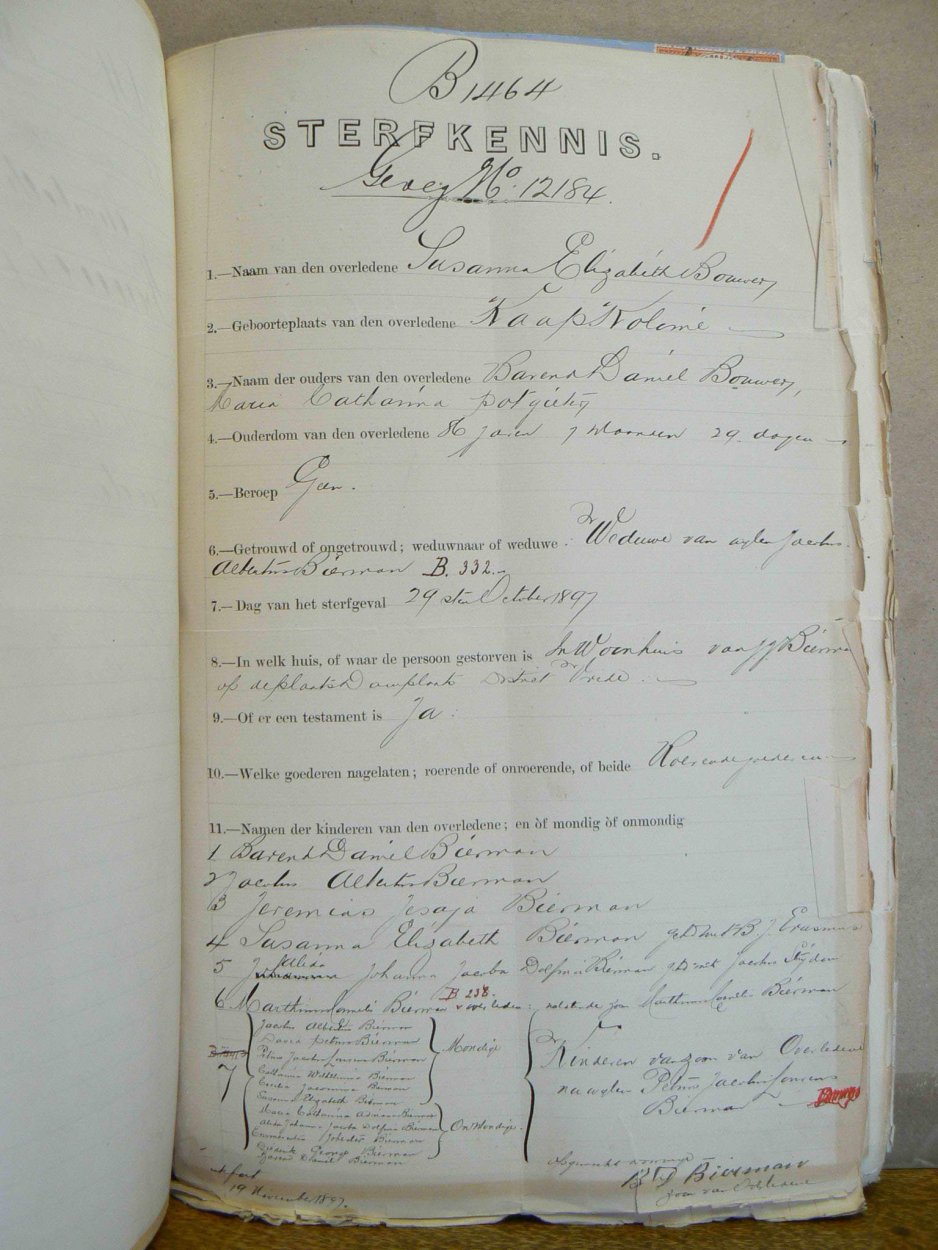 B 1464
STERFKENNIS.
Gevoeg No. 12184.
1.—Naam van den overledene Susanna Elizabeth Bouwer
2.—Geboorteplaats van den overledene Kaap Kolonie
3.—Naam der ouders van den overledene Barend Daniel Bouwer,
Maria Catharina potgieter
4.—Ouderdom van den overledene 86 jaren 7 Maanden 29 dagen
5.—Beroep Geen.
6.—Getrouwd of ongetrouwd; weduwnaar of weduwe. Weduwe van wylen Jacobus
Albertus Bierman B. 332.
7.—Dag van het sterfgeval 29 sten October 1897
8.—In welk huis, of waar de persoon gestorven is In Woonhuis van J J Bierman
op de plaats Damplaats District Vrede.
9.—Of er een testament is Ja.
10.—Welke goederen nagelaten; roerende of onroerende, of beide Roerende goederen
11.—Namen der kinderen van den overledene; en òf mondig òf onmondig
1 Barend Daniel Bierman
2 Jacobus Albertus Bierman
3 Jeremias Jesaja Bierman
4 Susanna Elizabeth Bierman getr met B J Erasmus
5 Alida Johanna Jacoba Dolfina Bierman getr met Jacobus Stydom
B 238.
6 Marthinus Cornelis Bierman overleden: nalatende zoon Marthinus Cornelis Bierman
7
Jacobus Albertus Bierman
David Petrus Bierman
Petrus Jacobus Lourens Bierman
Catharina Wilhelmina Bierman
Cecilia Jacomina Bierman
Susanna Elizabeth Bierman
Mondige
Maria Catharina Adriana Bierman
Alida Johanna Jacoba Dolfina Bierman
Johannes Bierman
George Bierman
Barend Daniel Bierman
Onmondige
Kinderen van zoon van Overledene
na wylen Petrus Jacobus Lourens
Bierman
B D Bierman
zoon van Overledene
19 November 1897.